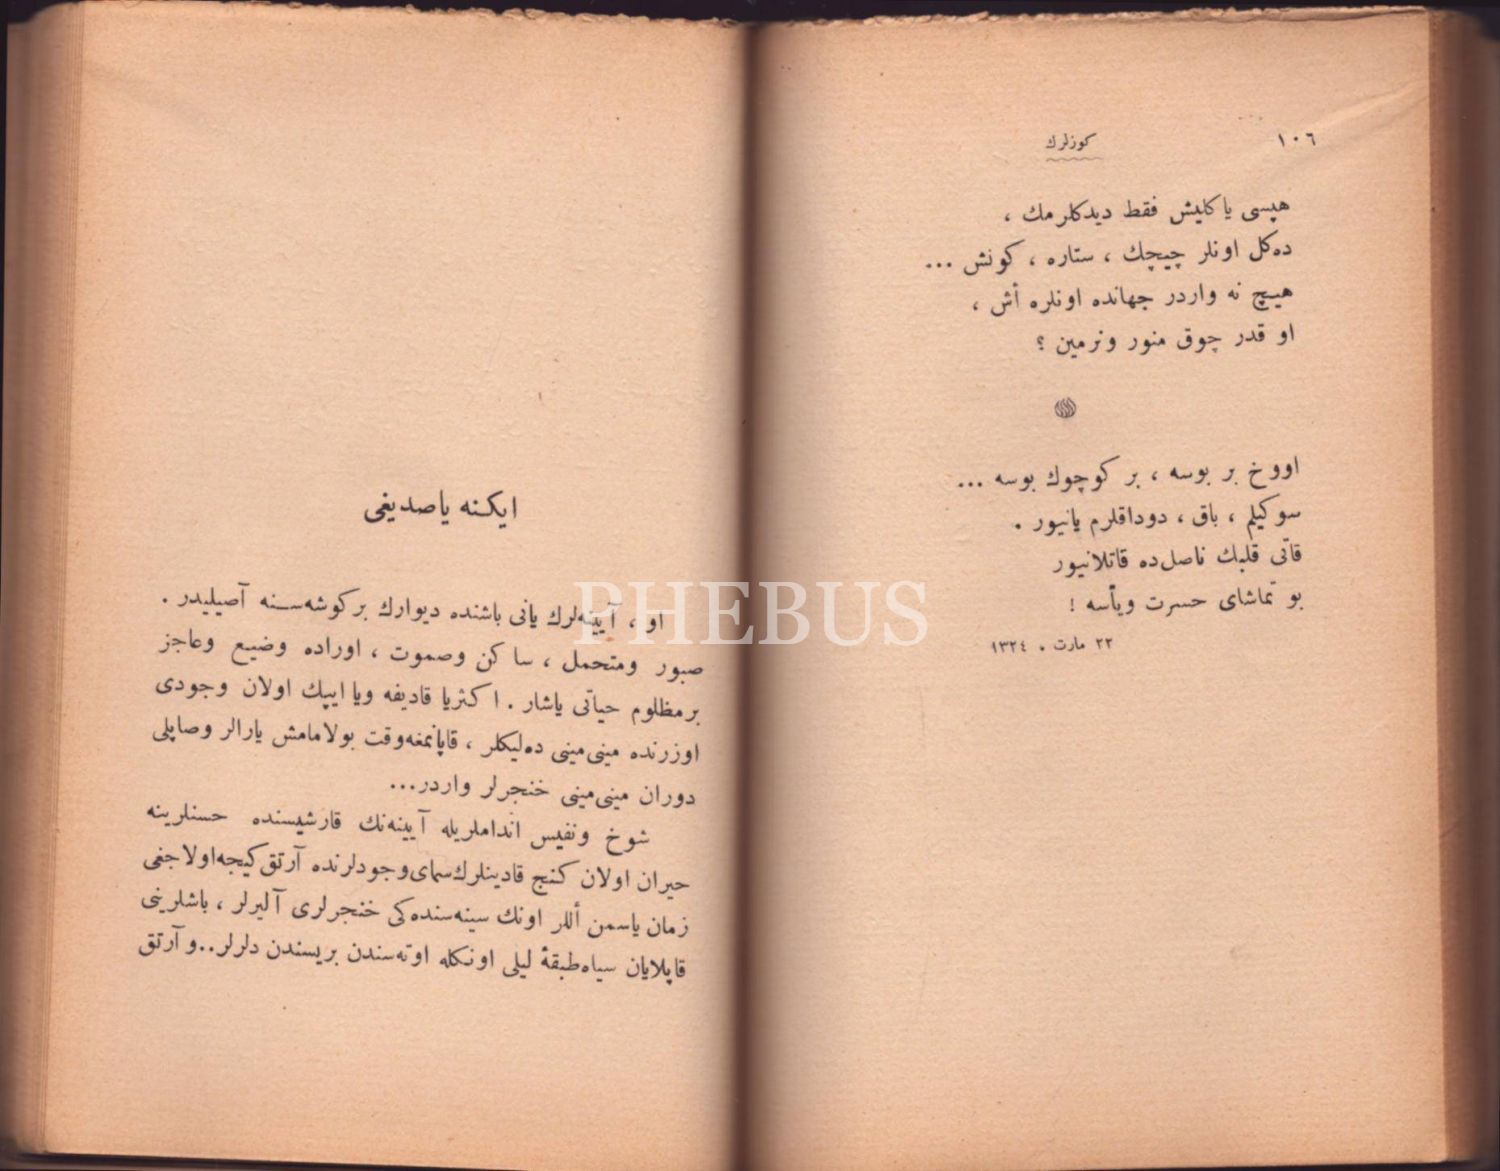 ١٠٦
كوزلرك
هپسی یاكلیش فقط دیدكلرمك ،
ده‌كل اونلر چیچك ، ستاره ، كونش ...
هیچ نه واردر جهانده اونلره أش ،
او قدر چوق منور ونرمین ؟
اووخ بر بوسه ، بر كوچوك بوسه ...
سوكیلم ، باق ، دوداقلرم یانیور .
قاتی قلبك ناصل‌ده قاتلانیور
بو تماشای حسرت ویأسه !
٢٢ مارت ٠ ١٣٢٤
ایكنه یاصدیغی
او ، آیینه‌لرك یانی باشنده دیوارك بركوشه‌سنه آصیلیدر .
صبور ومتحمل ، ساكن وصموت ، اوراده وضیع وعاجز
برمظلوم حیاتی یاشار . اكثریا قادیفه ویا ایپك اولان وجودی
اوزرنده مینی‌مینی ده‌لیكلر ، قاپانمغه‌وقت بولامامش یارالر وصاپلی
دوران مینی‌مینی خنجرلر واردر...
شوخ ونفیس انداملریله آیینه‌نك قارشیسنده حسنلرینه
حیران اولان كنج قادینلرك‌سمای‌وجودلرنده آرتق‌كیجه‌اولاجغی
زمان یاسمن أللر اونك سینه‌سنده‌كی خنجرلری آلیرلر ، باشلرینی
قاپلایان سیاه‌طبقهٔ لیلی اونكله اوته‌سندن بریسندن دلرلر..و آرتق
PHEBUS